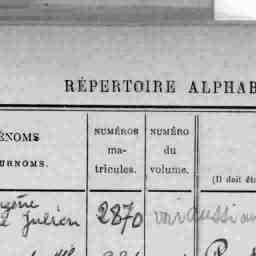 RÉPERTOIRE ALPHAB
ÉNOMS
URNOMS.
NUMÉROS
ma-
tricules.
NUMÉRO
du
volume.
(Il doit êt
Julien 2870 voir aussi au